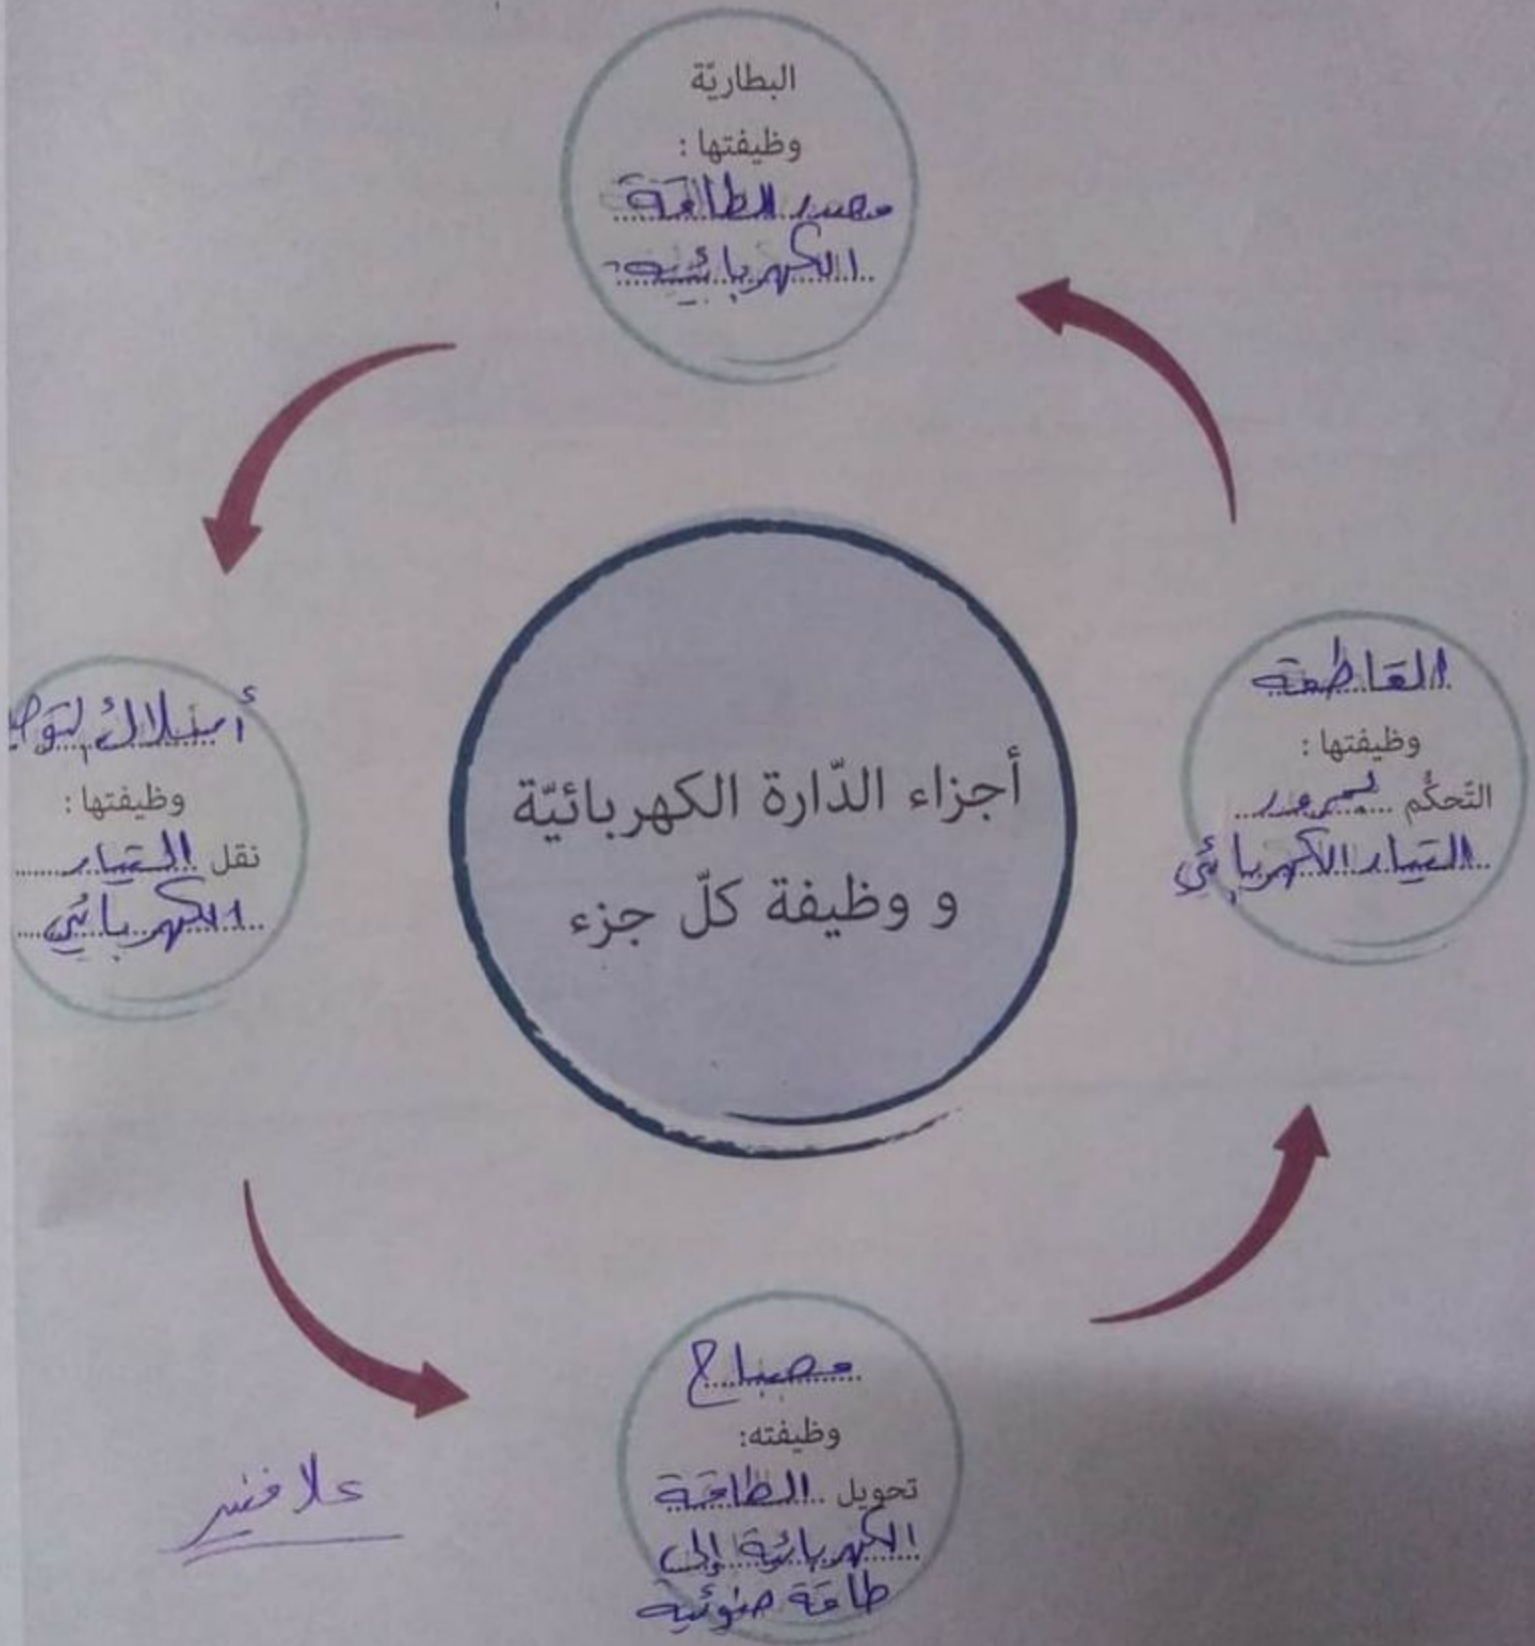 البطاريّة
وظيفتها :
مصدر الطاقة
الكهربائية
القاطعة
وظيفتها :
التّحكُّم بمرور
التيار الكهربائي
أجزاء الدّارة الكهربائيّة
و وظيفة كلّ جزء
أسلاك
وظيفتها :
نقل التيار
الكهربائي
مصباح
وظيفته:
تحويل الطاقة
الكهربائية إلى
طاقة ضوئية